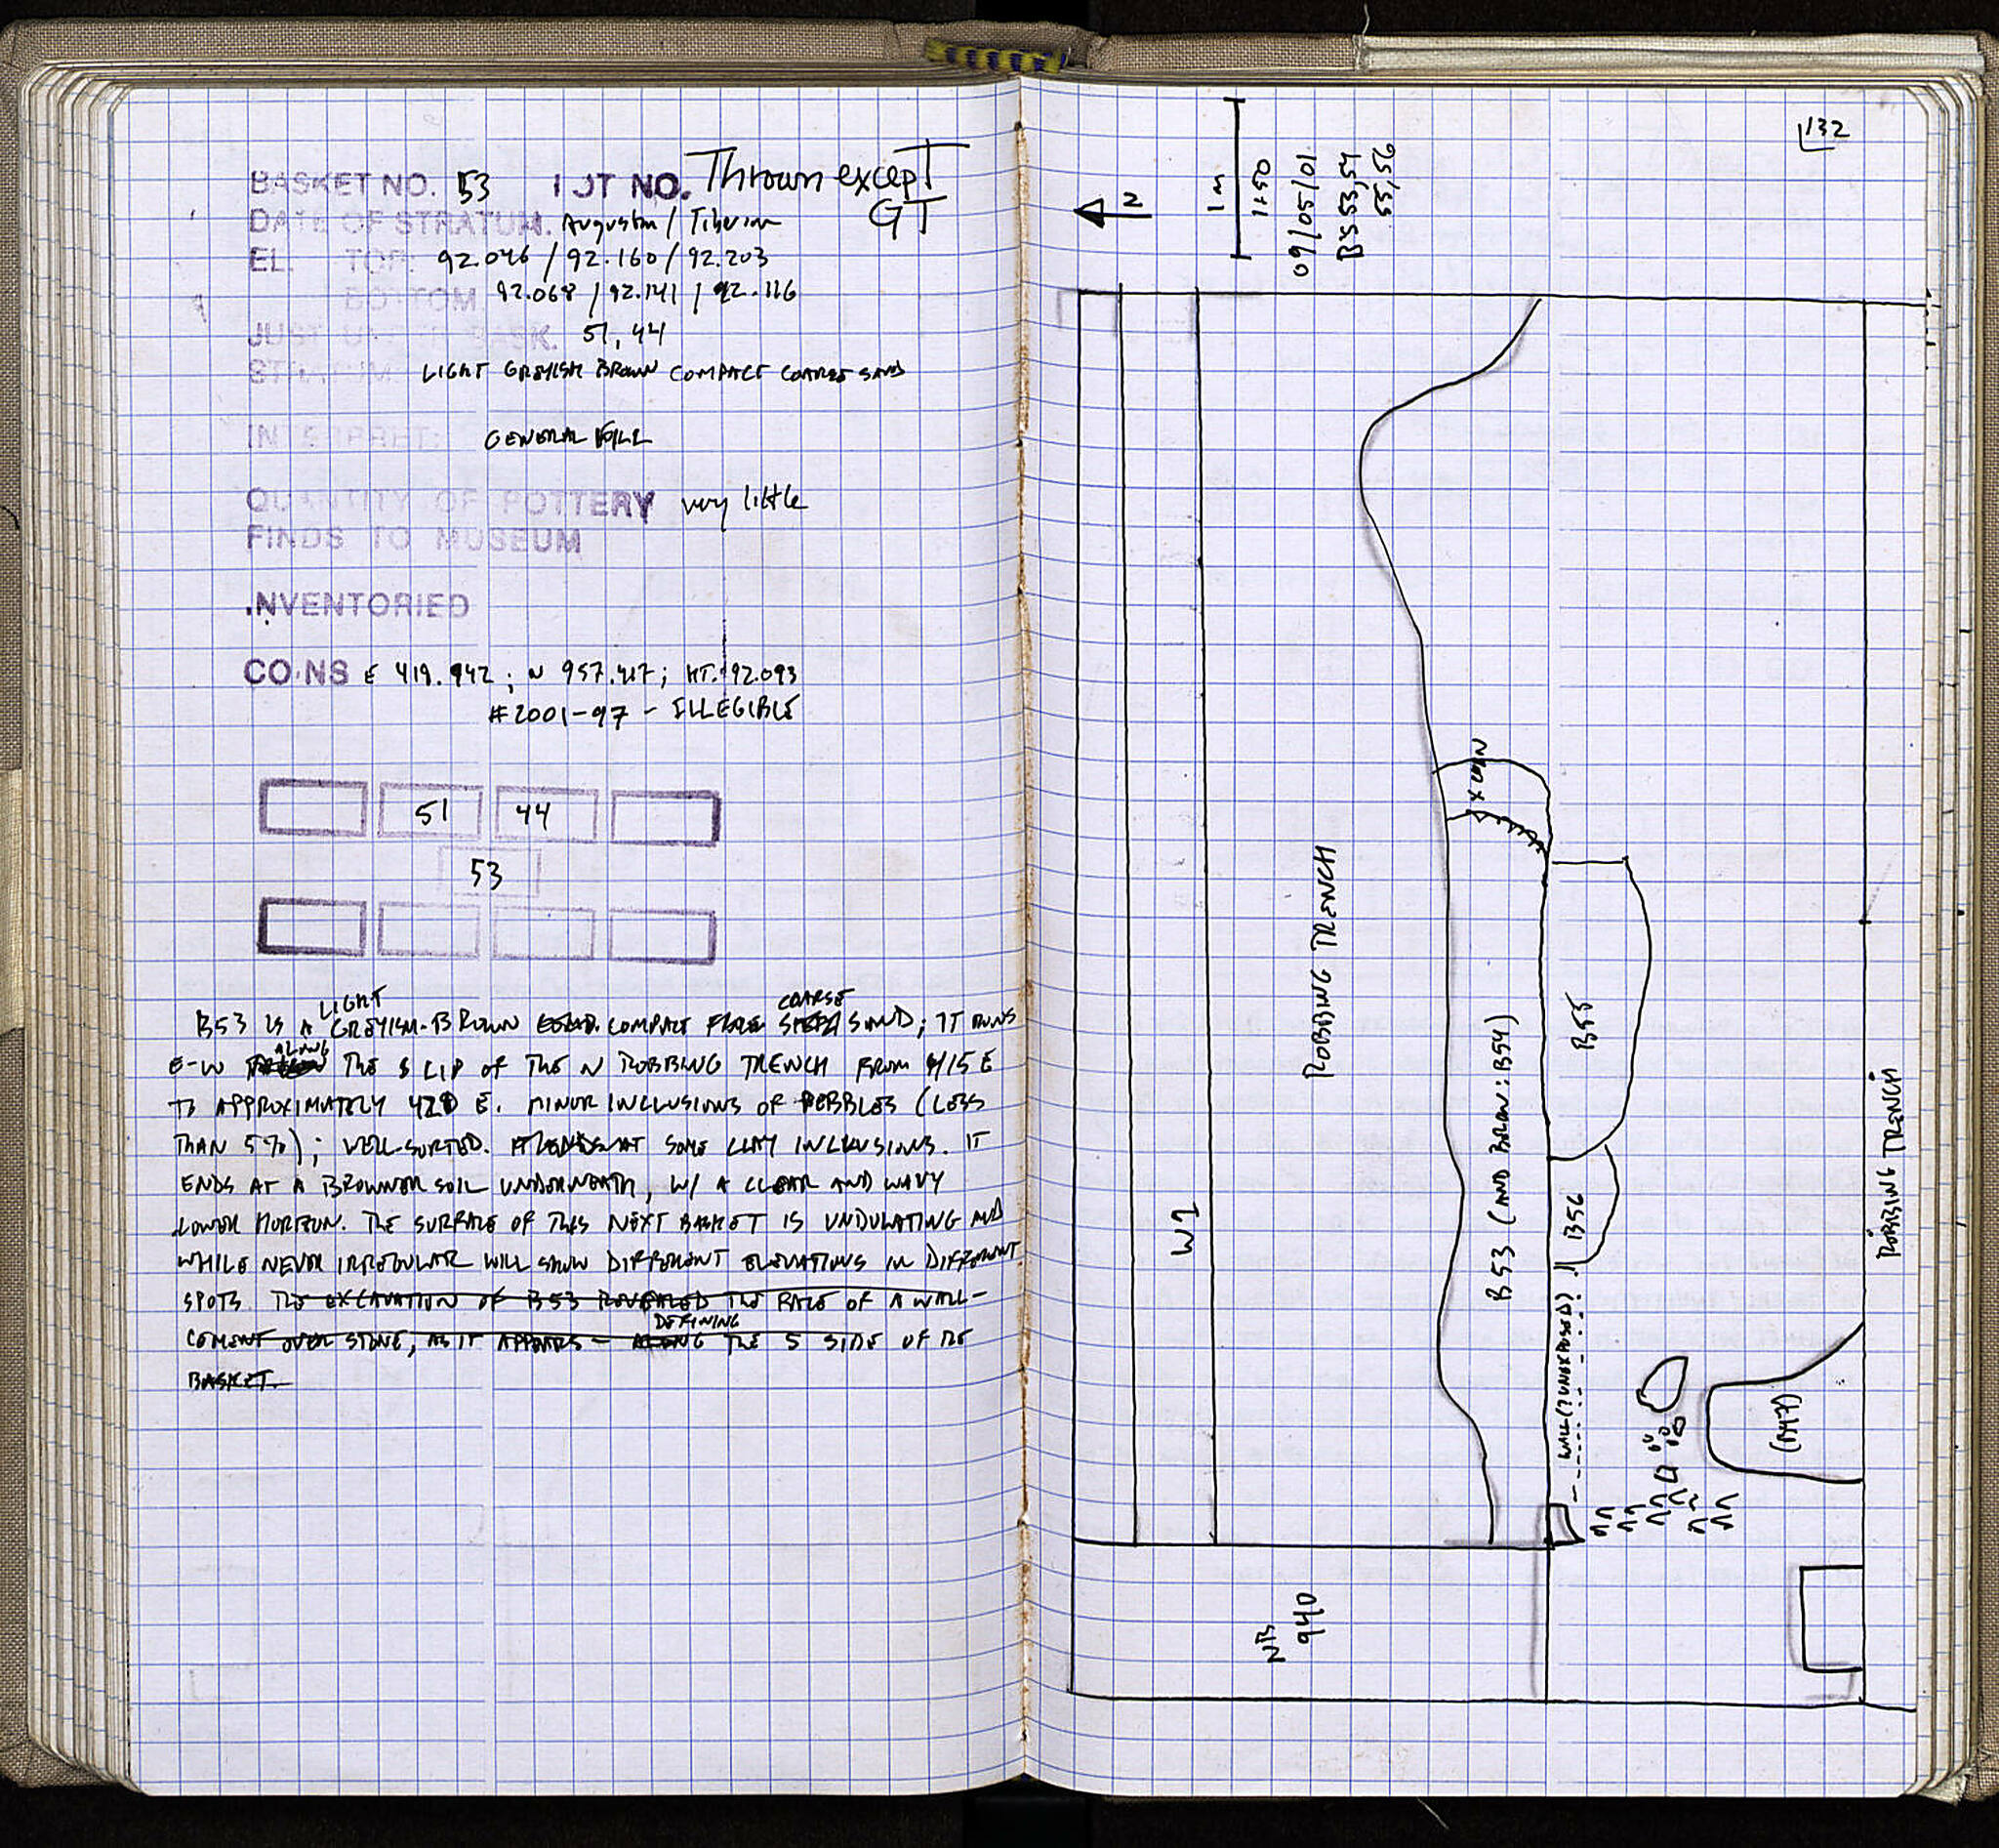 BASKET NO. 53 LOT NO. Thrown except
GT
DATE OF STRATUM. Augustan / Tiberian
EL. TOP: 92.046 / 92.160 / 92.203
BOTTOM. 92.068 / 92.141 / 92.116
JUST UNDER BASK. 51, 44
STRATUM: LIGHT GREYISH BROWN COMPACT COARSE SAND
INTERPRET: GENERAL FILL
QUANTITY OF POTTERY very little
FINDS TO MUSEUM
INVENTORIED
COINS E 419.942; N 957.417; HT. 92.093
#2001-97 - ILLEGIBLE
51 44
53
B53 IS A LIGHT GREYISH-BROWN COMPACT COARSE SAND; IT RUNS
E-W ALONG THE S LIP OF THE N ROBBING TRENCH FROM 415 E
TO APPROXIMATELY 420 E. MINOR INCLUSIONS OF PEBBLES (LESS
THAN 5%); WELL-SORTED. SOME CLAY INCLUSIONS. IT
ENDS AT A BROWNER SOIL UNDERNEATH, W/ A CLEAR AND WAVY
LOWER HORIZON. THE SURFACE OF THIS NEXT BASKET IS UNDULATING AND
WHILE NEVER IRREGULAR WILL SHOW DIFFERENT ELEVATIONS IN DIFFERENT
SPOTS. THE EXCAVATION OF B53 REVEALED THE FACE OF A WALL-
CEMENT OVER STONE, AS IT APPEARS - ALONG DEFINING THE S SIDE OF THE
BASKET.
132
N
1m
1:50
09/05/01
BS 53, 54
55, 56
ROBBING TRENCH
W1
X COIN
B53 (AND BELOW: B54)
B55
B56
WALL (? UNEXPOSED)
(B47)
ROBBING TRENCH
NB
940